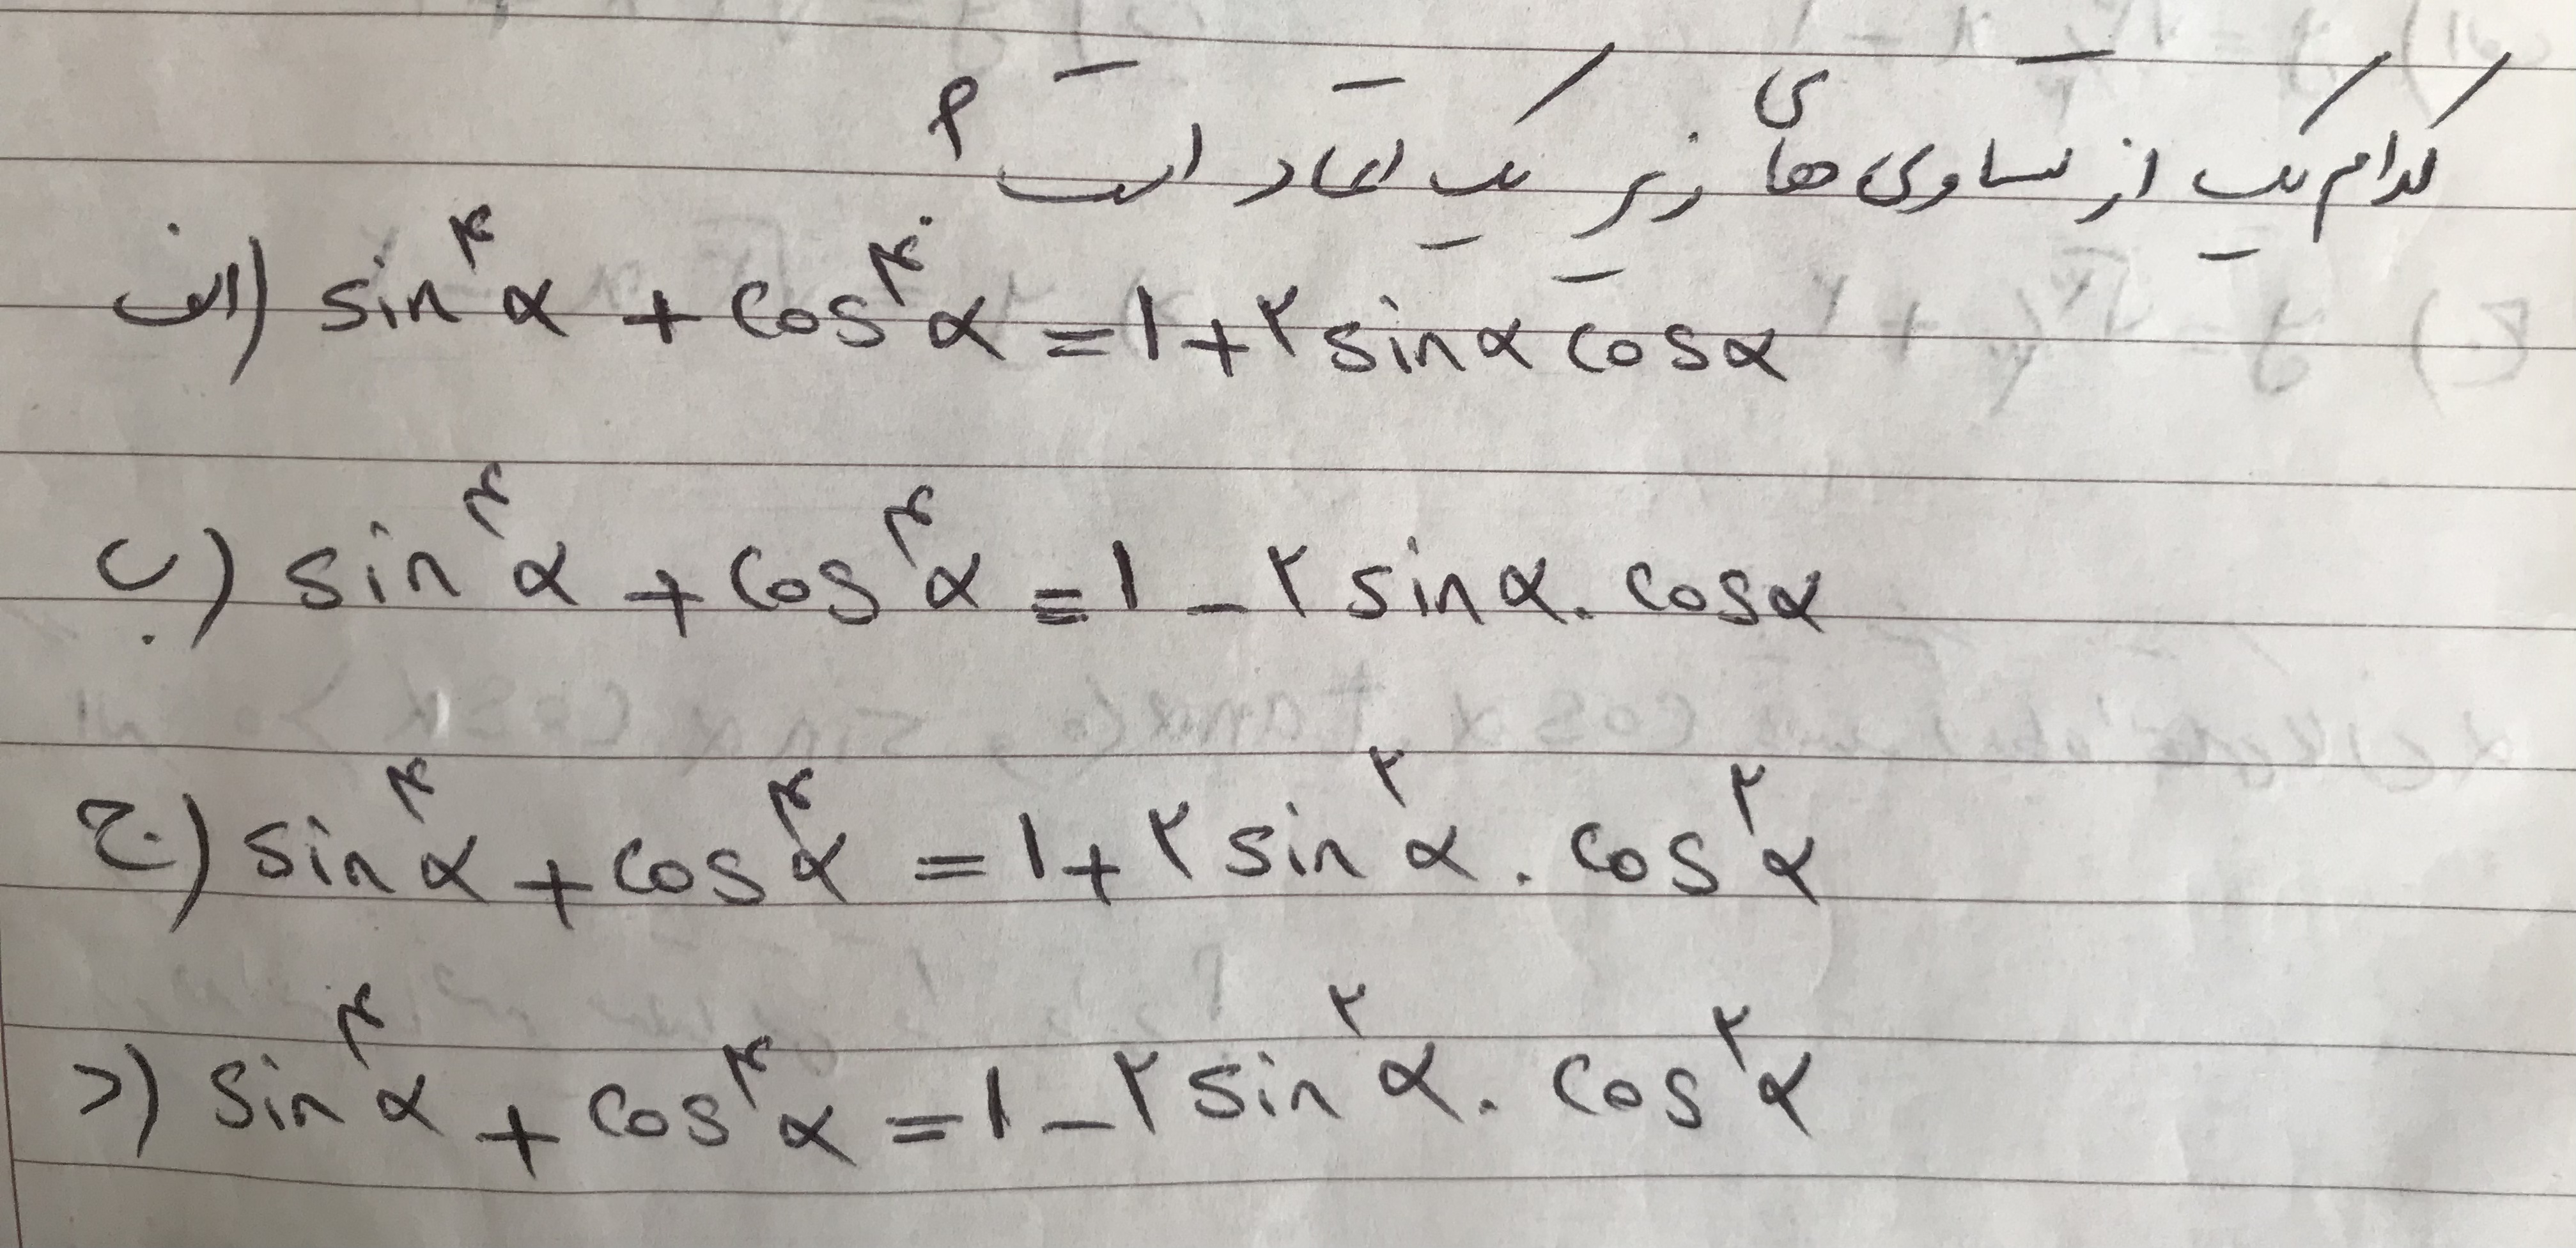 کدام یک از تساوی های زیر یک اتحاد است؟
الف) sin^۴ α + cos^۴ α = ۱ + ۲ sin α cos α
ب) sin^۴ α + cos^۴ α = ۱ - ۲ sin α . cos α
ج) sin^۴ α + cos^۴ α = ۱ + ۲ sin^۲ α . cos^۲ α
د) sin^۴ α + cos^۴ α = ۱ - ۲ sin^۲ α . cos^۲ α